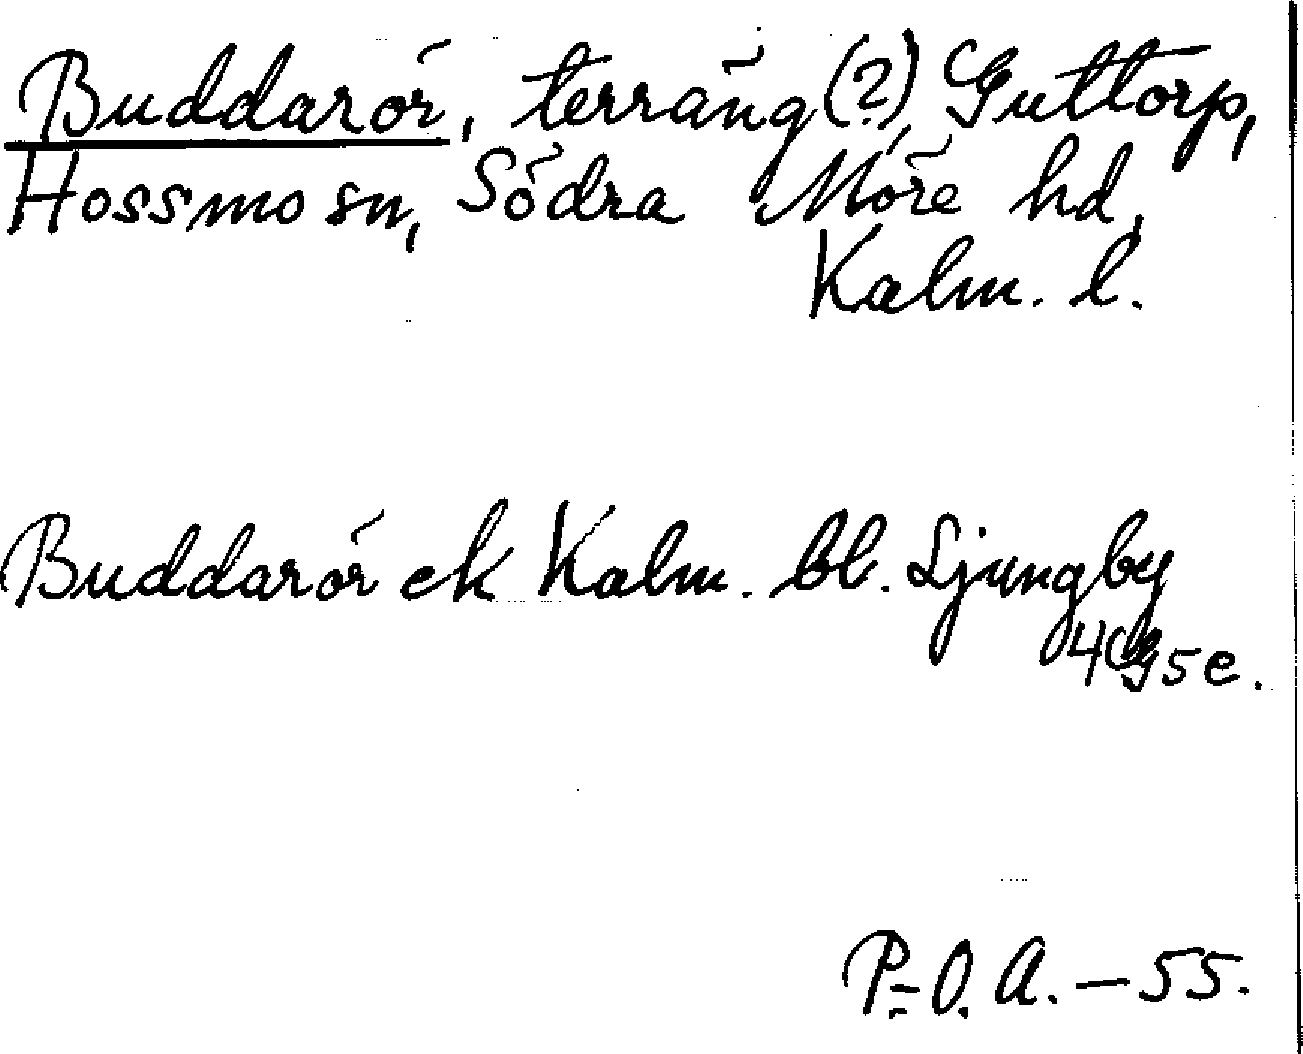 Buddarör, terräng (?) Guttorp,
Hossmo sn, Södra Möre hd,
Kalm. l.
Buddarör ek Kalm. bl. Ljungby
4G 5e.
P.-O. A. – 55.